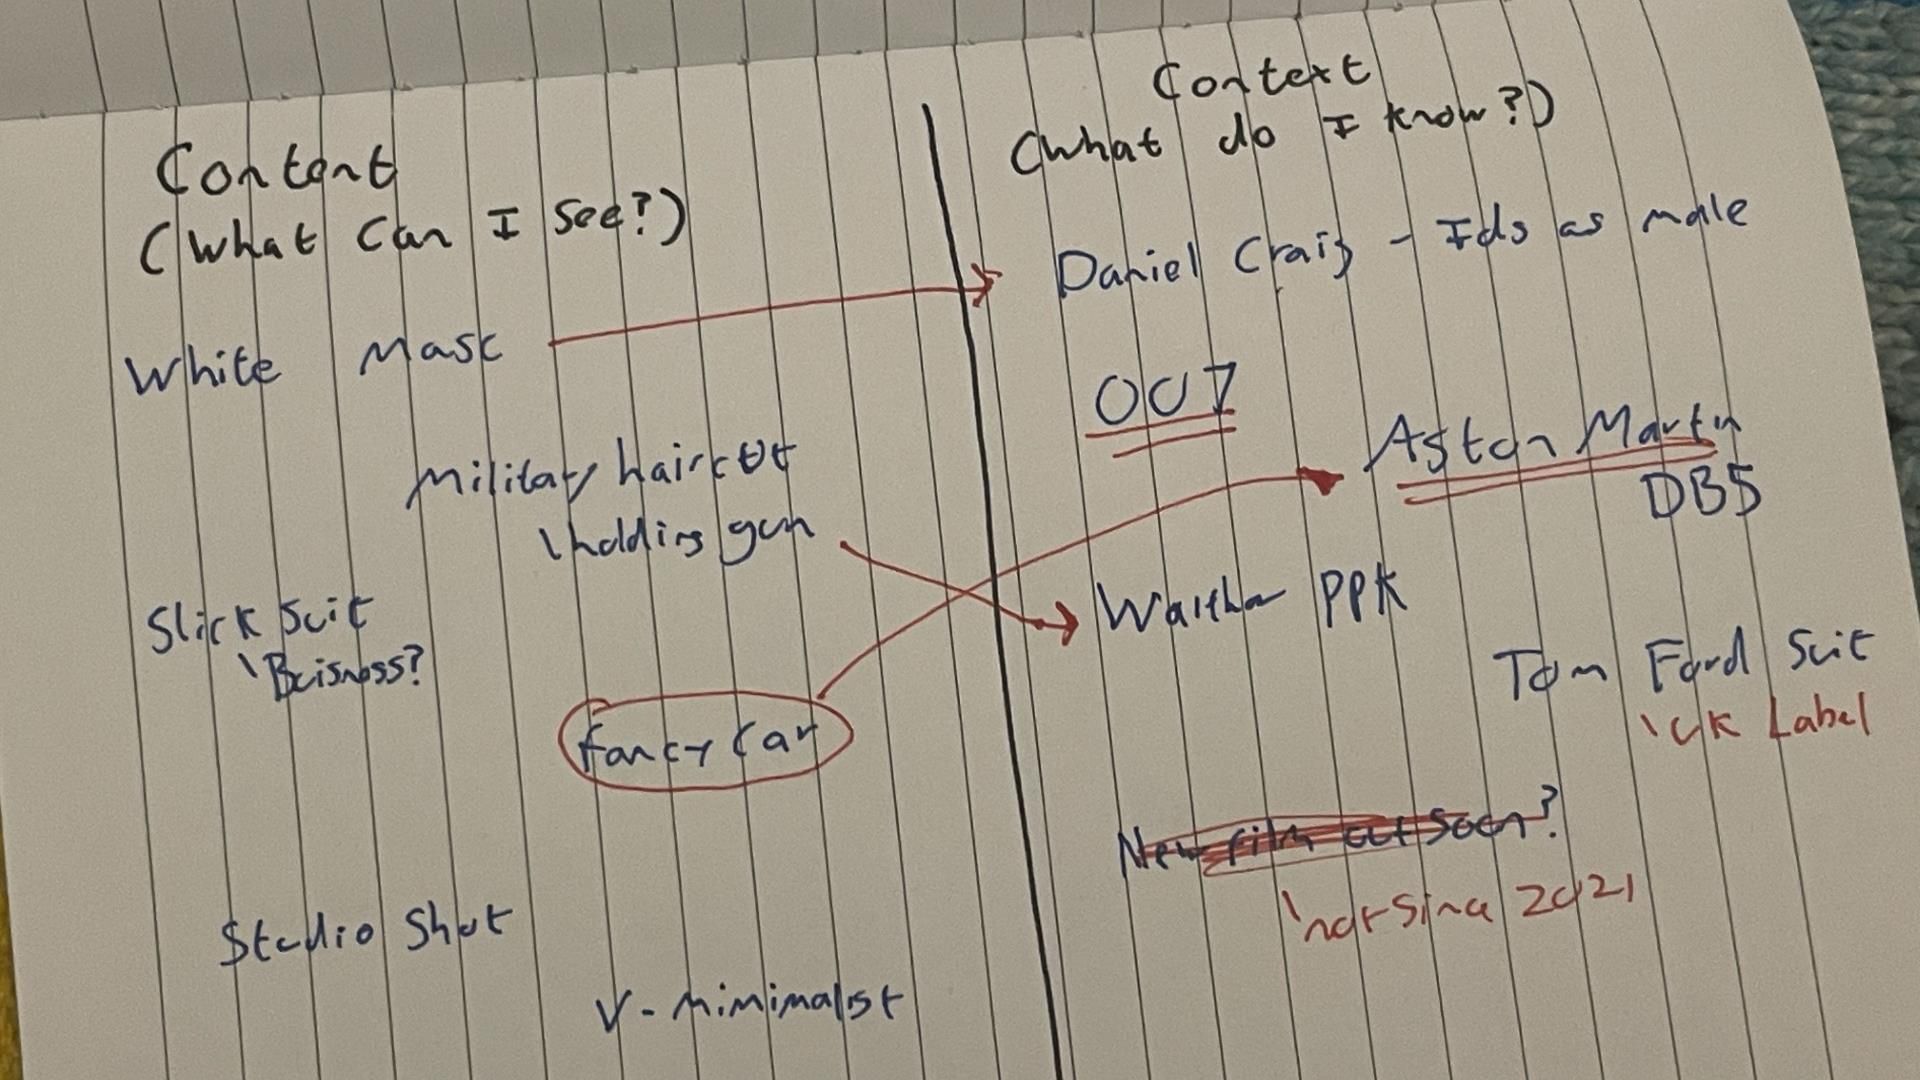 Content
(What Can I See?)
White Masc
Military haircut
\holding gun
Slick Suit
\Buisness?
Fancy Car
Studio Shot
V - minimalist
Context
(What do I know?)
Daniel Craig - Ids as male
007
Aston Martin
DB5
Walther PPK
Tom Ford Suit
\UK Label
New film out soon?
\not since 2021